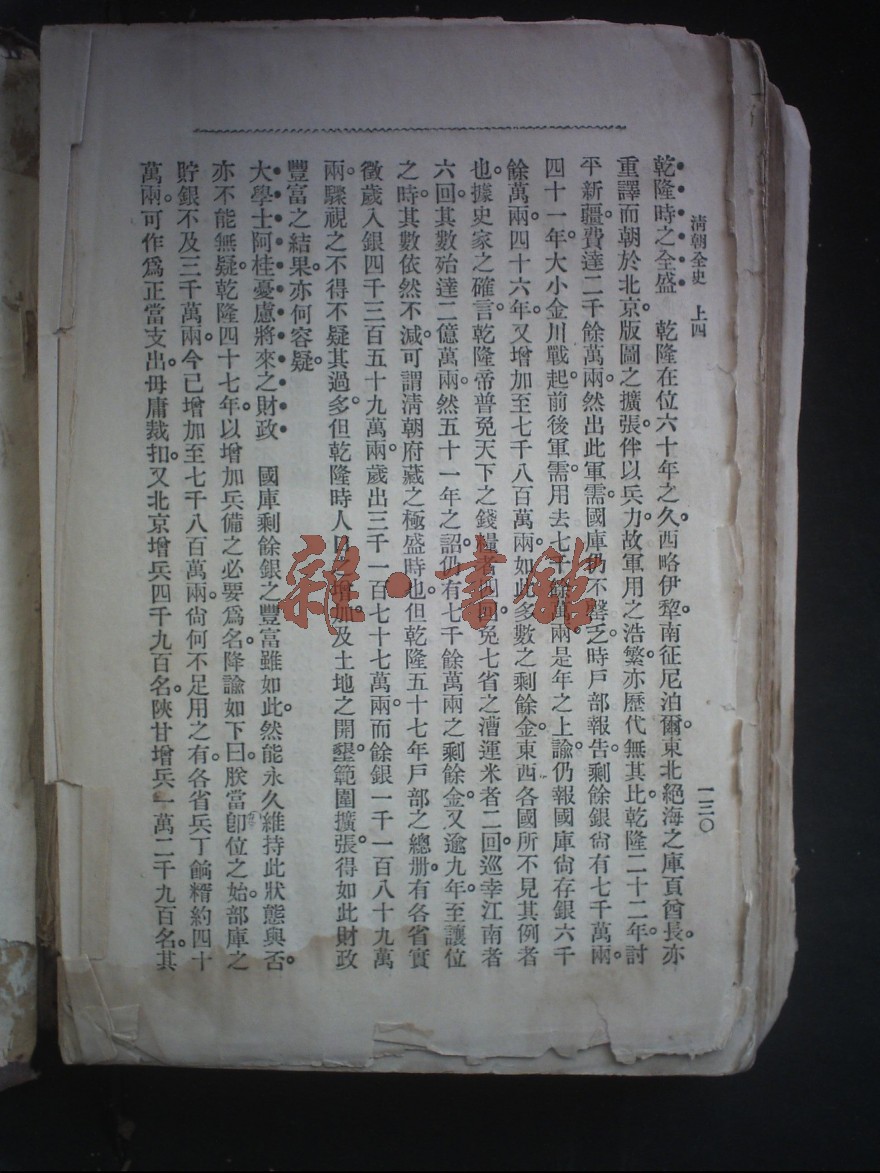 清朝全史 上四
一三〇
乾隆時之全盛 乾隆在位六十年之久。西略伊犂。南征尼泊爾。東北絕海之庫頁酋長。亦
重譯而朝於北京。版圖之擴張。伴以兵力。故軍用之浩繁。亦歷代無其比。乾隆二十二年。討
平新疆。費達二千餘萬兩。然出此軍需。國庫仍不罄乏。時戶部報告。剩餘銀尙有七千萬兩。
四十一年。大小金川戰起。前後軍需。用去七千餘萬兩。是年之上諭。仍報國庫尙存銀六千
餘萬兩。四十六年。又增加至七千八百萬兩。如此多數之剩餘金。東西各國所不見其例者
也。據史家之確言。乾隆帝普免天下之錢糧者四回。免七省之漕運米者二回。巡幸江南者
六回。其數殆達二億萬兩。然五十一年之詔。仍有七千餘萬兩之剩餘金。又逾九年。至讓位
之時。其數依然不減。可謂淸朝府藏之極盛時也。但乾隆五十七年戶部之總册。有各省實
徵歲入銀四千三百五十九萬兩。歲出三千一百七十七萬兩。而餘銀一千一百八十九萬
兩。驟視之不得不疑其過多。但乾隆時人口之增加。及土地之開墾。範圍擴張。得如此財政
豐富之結果。亦何容疑。
大學士阿桂憂慮將來之財政 國庫剩餘銀之豐富雖如此。然能永久維持此狀態與否。
亦不能無疑。乾隆四十七年。以增加兵備之必要爲名。降諭如下曰。朕當卽位之始。部庫之
貯銀不及三千萬兩。今已增加至七千八百萬兩。尙何不足用之有。各省兵丁餉糈約四十
萬兩。可作爲正當支出。毋庸裁扣。又北京增兵四千九百名。陝甘增兵一萬二千九百名。其
雜·書館